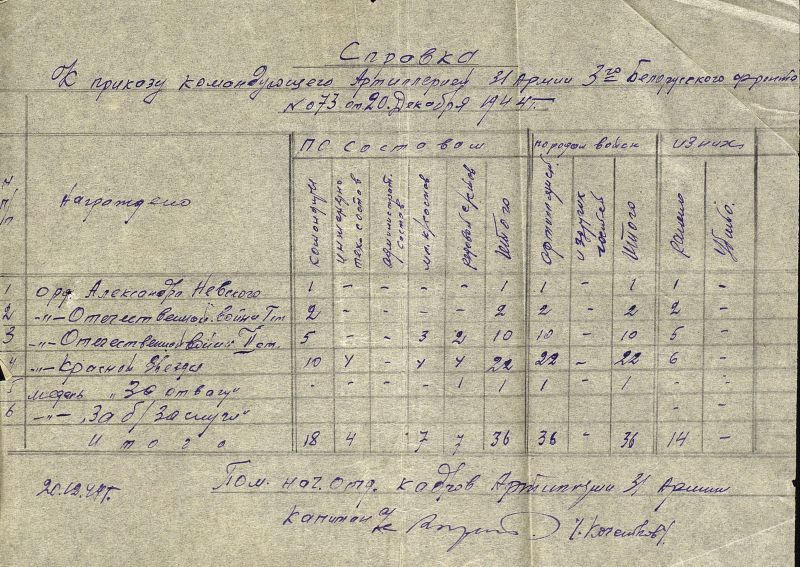 Справка
К приказу командующего Артиллерией 31 Армии 3го Белорусского фронта
№ 073 от 20. Декабря 1944 г.
№ п/п Награждено по составам по родам войск из них
командн. инженерно техн. состав администрат. состав мл. ком. состав рядовой Итого артиллерией и других Итого ранено Убито.
1 орд. Александра Невского 1 - - - - 1 1 - 1 1 -
2 -"- Отечественной войны I ст. 2 - - - - 2 2 - 2 2 -
3 -"- Отечественной войны II ст. 5 - - 3 2 10 10 - 10 5 -
4 -"- Красной Звезды 10 4 - 4 4 22 22 - 22 6 -
5 медаль "За отвагу" - - - - 1 1 1 - 1 - -
6 -"- "За б/заслуги" - -
Итого 18 4 - 7 7 36 36 - 36 14 -
20.12.44 г. Пом. нач. отд. кадров Артиллерии 31 Армии
капитан